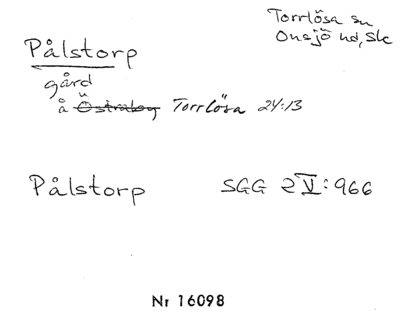 Torrlösa sn
Onsjö hd, Sk
Pålstorp
gård
å Östraby Torrlösa 24:13
Pålstorp SGG 2 V: 966
Nr 16098